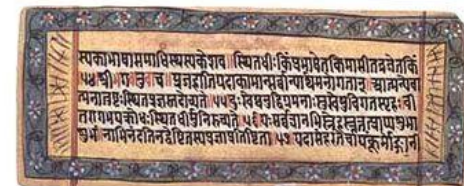 स्यकाभाषासमाधिस्थस्यकेशव॥ स्थितधीःकिंप्रभाषेतकिमासीतव्रजेतकिं
५४ श्रीभगवानुवाच॥ प्रजहातियदाकामान्सर्वान्पार्थमनोगतान्॥ आत्मन्येवा
त्मनातुष्टःस्थितप्रज्ञस्तदोच्यते॥५५ दुःखेष्वनुद्विग्नमनाःसुखेषुविगतस्पृहः॥वी
तरागभयक्रोधःस्थितधीर्मुनिरुच्यते॥५६ यःसर्वत्रानभिस्नेहस्तत्तत्प्राप्यशुभा
शुभं॥ नाभिनंदतिनद्वेष्टितस्यप्रज्ञाप्रतिष्ठिता॥ ५७ यदासंहरतेचायंकूर्मोङ्गानी